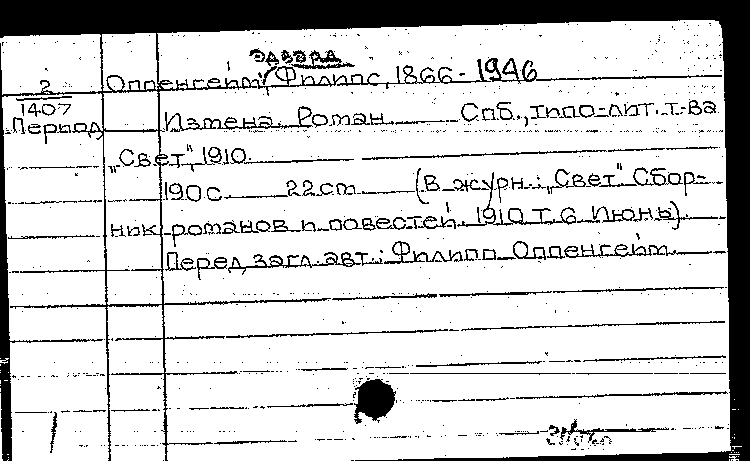 Эдвард
2 Оппенгейм, Филипс, 1866-1946
1407
Период Измена. Роман. Спб., типо-лит. т-ва
„Свет", 1910.
190 с. 22 см. (В журн.: „Свет". Сбор-
ник романов и повестей. 1910. Т. 6. Июнь).
Перед загл. авт.: Филипп Оппенгейм.